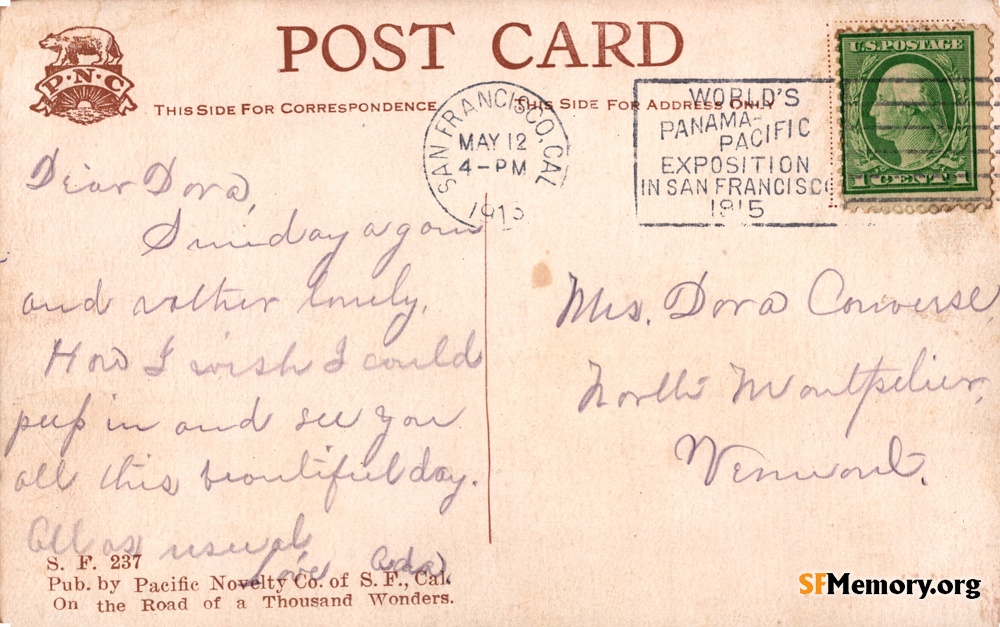 POST CARD
P·N·C
THIS SIDE FOR CORRESPONDENCE
THIS SIDE FOR ADDRESS ONLY
SAN FRANCISCO, CAL
MAY 12
4-PM
1913
WORLD'S
PANAMA-
PACIFIC
EXPOSITION
IN SAN FRANCISCO
1915
U.S. POSTAGE
1 CENT 1
Dear Dora,
Sunday again
and rather lonely.
How I wish I could
peep in and see you
all this beautiful day.
All as usual
Love Ada
Mrs. Dora Converse,
North Montpelier,
Vermont.
S. F. 237
Pub. by Pacific Novelty Co. of S. F., Cal.
On the Road of a Thousand Wonders.
SFMemory.org